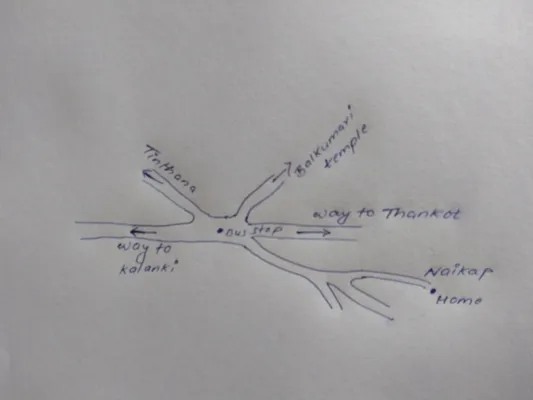 Tinthana
Balkumari
temple
way to Thankot
Bus stop
way to
kalanki
Naikap
Home